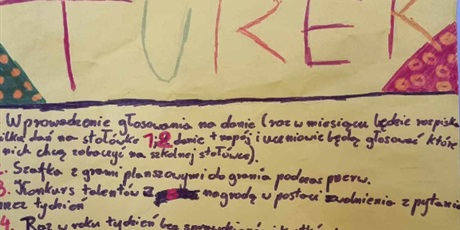 TUREK
Wprowadzenie głosowania na danie (raz w miesiącu będzie rozpiska
kilka dań na stołówkę 1;2 danie + napój i uczniowie będą głosować które
z nich chcą zobaczyć na szkolnej stołówce).
2. Szafka z grami planszowymi do grania podczas przerw.
3. Konkurs talentów z nagrodą w postaci zwolnienia z pytania
przez tydzień
4. Raz w roku tydzień bez